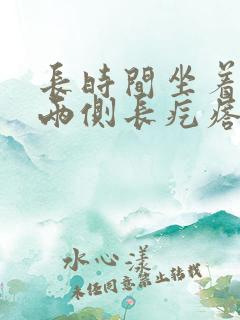 長時間坐着
兩側長疙瘩
水心漾
未经同意禁止转载